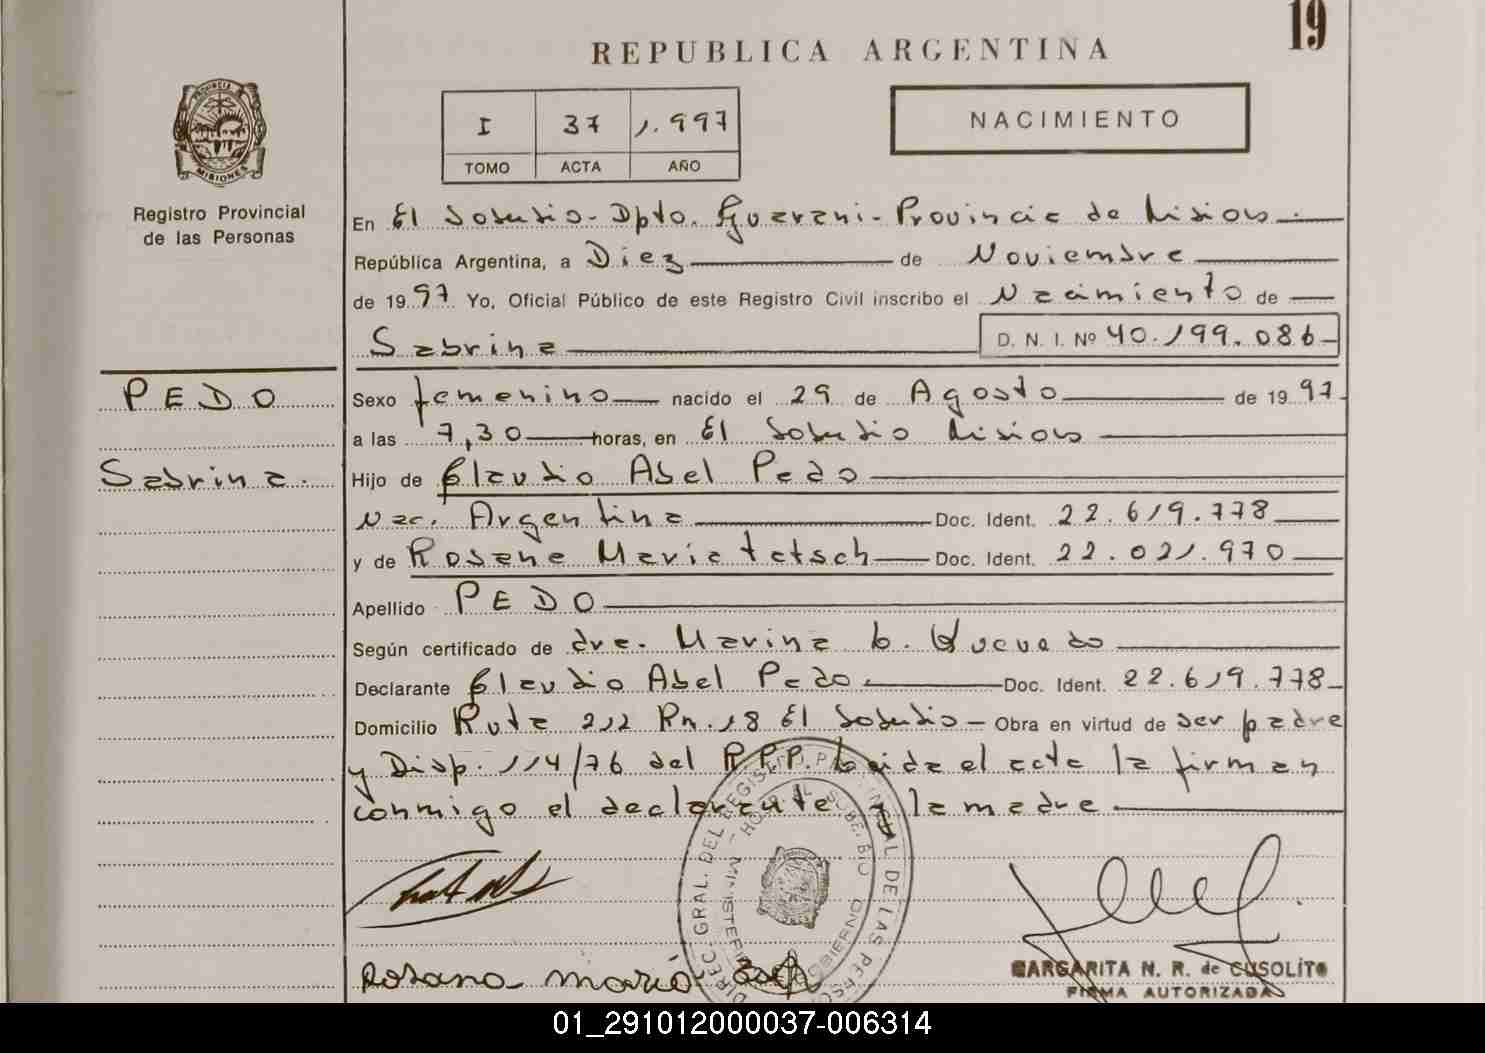 19
REPUBLICA ARGENTINA
PROVINCIA DE
MISIONES
I 37 1.997
TOMO ACTA AÑO
NACIMIENTO
Registro Provincial
de las Personas
En El Soberbio - Dpto. Guarani - Provincia de Misiones.
República Argentina, a Diez de Noviembre
de 1997 Yo, Oficial Público de este Registro Civil inscribo el Nacimiento de
Sabrina D. N. I. Nº 40.199.086
PEDO
Sabrina.
Sexo femenino nacido el 29 de Agosto de 1997
a las 7,30 horas, en El Soberbio Misiones
Hijo de Claudio Abel Pedo
Nac. Argentina Doc. Ident. 22.619.778
y de Rosane Maria Doc. Ident. 22.021.970
Apellido PEDO
Según certificado de dra. Marina
Declarante Claudio Abel Pedo. Doc. Ident. 22.619.778
Domicilio Ruta 212 Km. 18 El Soberbio - Obra en virtud de ser padre
y Disp. 114/76 del R.P.P. Leida el acta la firman
conmigo el declarante y la madre
DIREC. GRAL. DEL REGISTRO PROVINCIAL DE LAS PERSO
HOSPITAL SOBERBIO
MINISTERIO GOBIERNO
Rosane Maria
MARGARITA N. R. de CUSOLITO
FIRMA AUTORIZADA
01_291012000037-006314